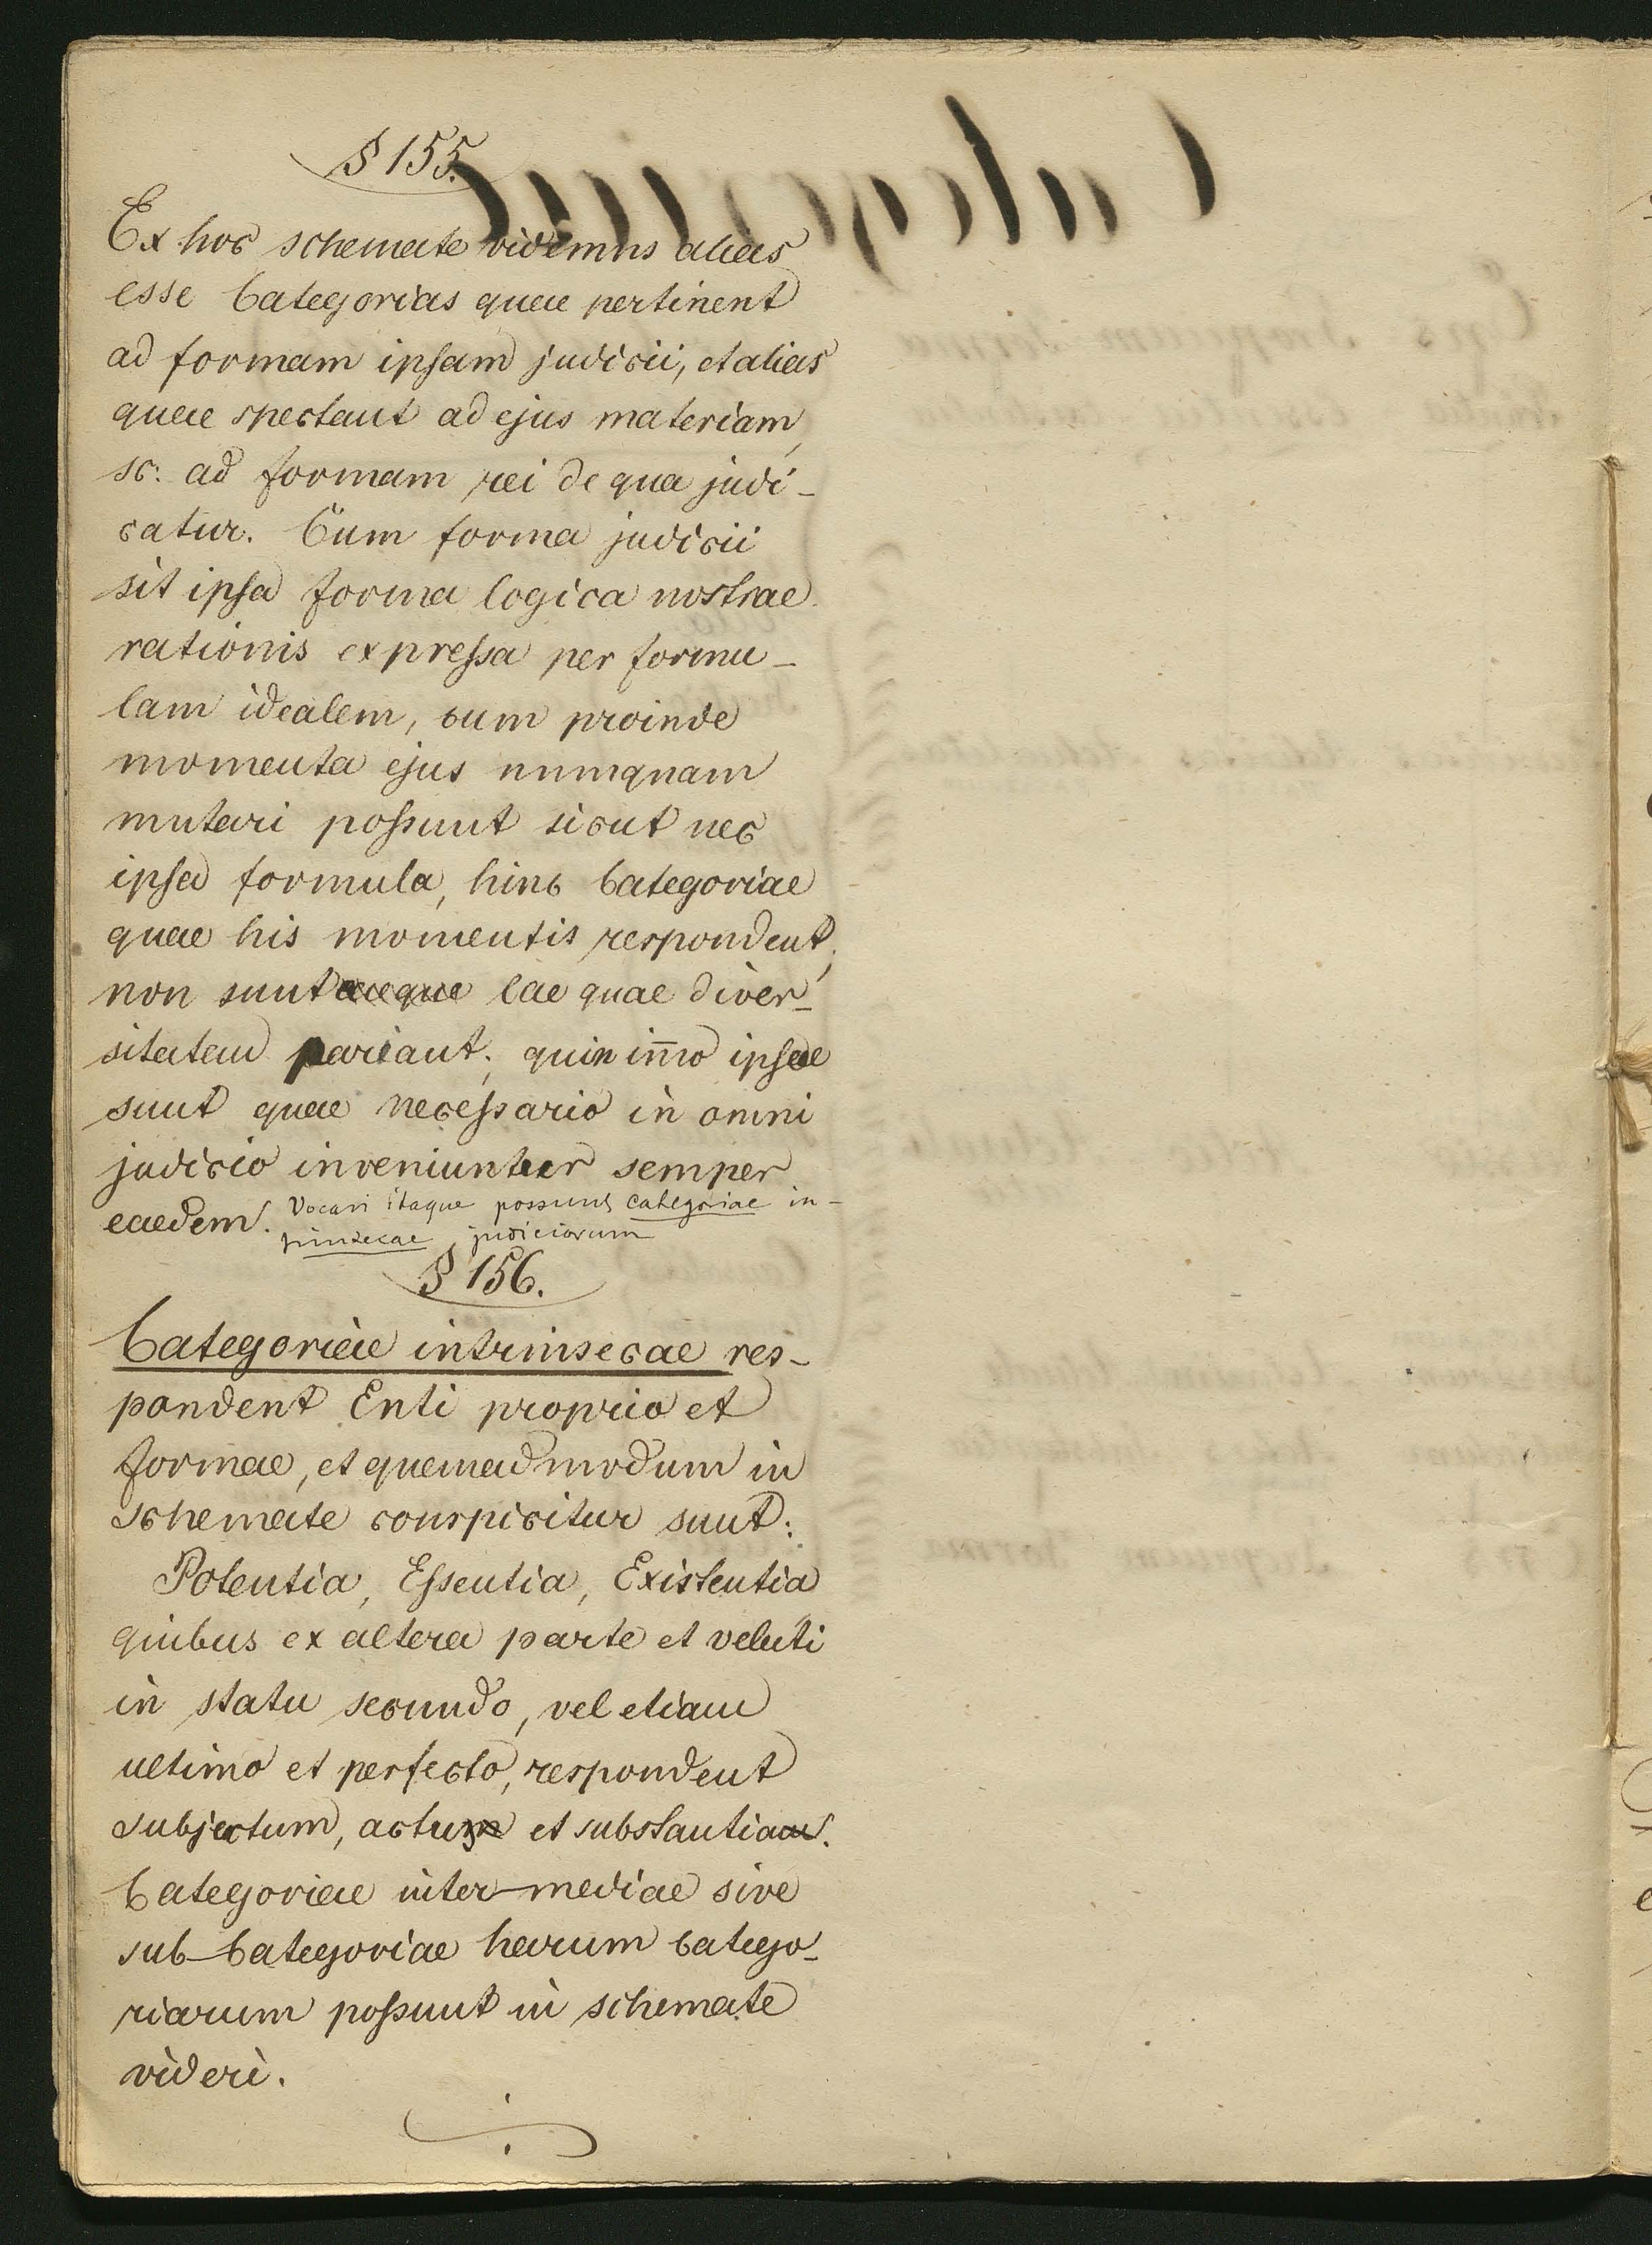 § 155.
Ex hoc schemate videmus alias
esse Categorias quae pertinent
ad formam ipsam judicii, et alias
quae spectant ad ejus materiam,
sc: ad formam rei de qua judi-
catur. Cum forma judicii
sit ipsa forma logica nostrae
rationis expressa per formu-
lam idealem, cum proinde
momenta ejus numquam
mutari possunt sicut nec
ipsa formula, hinc Categoriae
quae his momentis respondent,
non sunt eae quae diver-
sitatem pariant; quin im̄o ipsae
sunt quae necessario in omni
judicio inveniuntur semper
eaedem. Vocari itaque possunt categoriae in-
trinsecae judiciorum
§ 156.
Categoriae intrinsecae res-
pondent Enti proprio et
formae, et quemadmodum in
schemate conspicitur sunt:
Potentia, Essentia, Existentia
quibus ex altera parte et veluti
in statu secundo, vel etiam
ultimo et perfecto, respondent
subjectum, actus et substantia.
Categoriae inter-mediae sive
sub-Categoriae harum catego-
riarum possunt in schemate
videri.